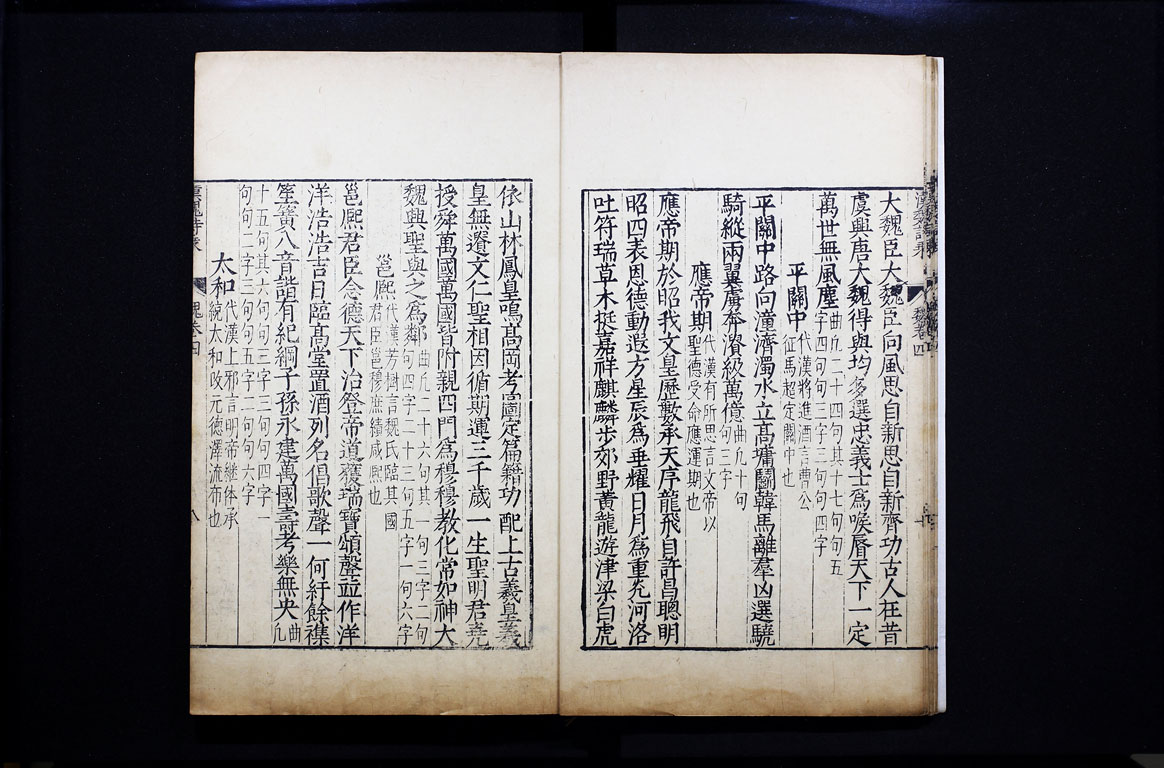 大魏臣大魏臣向風思自新思自新齊功古人在昔
虞與唐大魏得與均多選忠義士爲喉脣天下一定
萬世無風塵曲凡二十四句其十七句句五
字四句句三字三句句四字
平關中代漢將進酒言曹公
征馬超定關中也
平關中路向潼濟濁水立高墉鬭韓馬離羣凶選驍
騎縱兩翼虜奔潰級萬億曲凡十句
句三字
應帝期代漢有所思言文帝以
聖德受命應運期也
應帝期於昭我文皇歷數承天序龍飛自許昌聰明
昭四表恩德動遐方星辰爲垂耀日月爲重光河洛
吐符瑞草木挺嘉祥麒麟步郊野黃龍遊津梁白虎
依山林鳳皇鳴高岡考圖定篇籍功配上古羲皇羲
皇無遺文仁聖相因循期運三千歲一生聖明君堯
授舜萬國萬國皆附親四門爲穆穆教化常如神大
魏興聖與之爲鄰曲凡二十六句其一句三字二句
句四字二十三句五字一句六字
邕熙代漢芳樹言魏氏臨其國
君臣邕穆庶績咸熙也
邕熙君臣念德天下治登帝道獲瑞寶頌聲竝作洋
洋浩浩吉日臨高堂置酒列名倡歌聲一何紆餘襍
笙簧八音諧有紀綱子孫永建萬國壽考樂無央曲凡
十五句其六句句三字三句句四字一
句句二字三句句五字二句句六字
太和代漢上邪言明帝繼体承
統太和改元德澤流布也
魏卷四
八